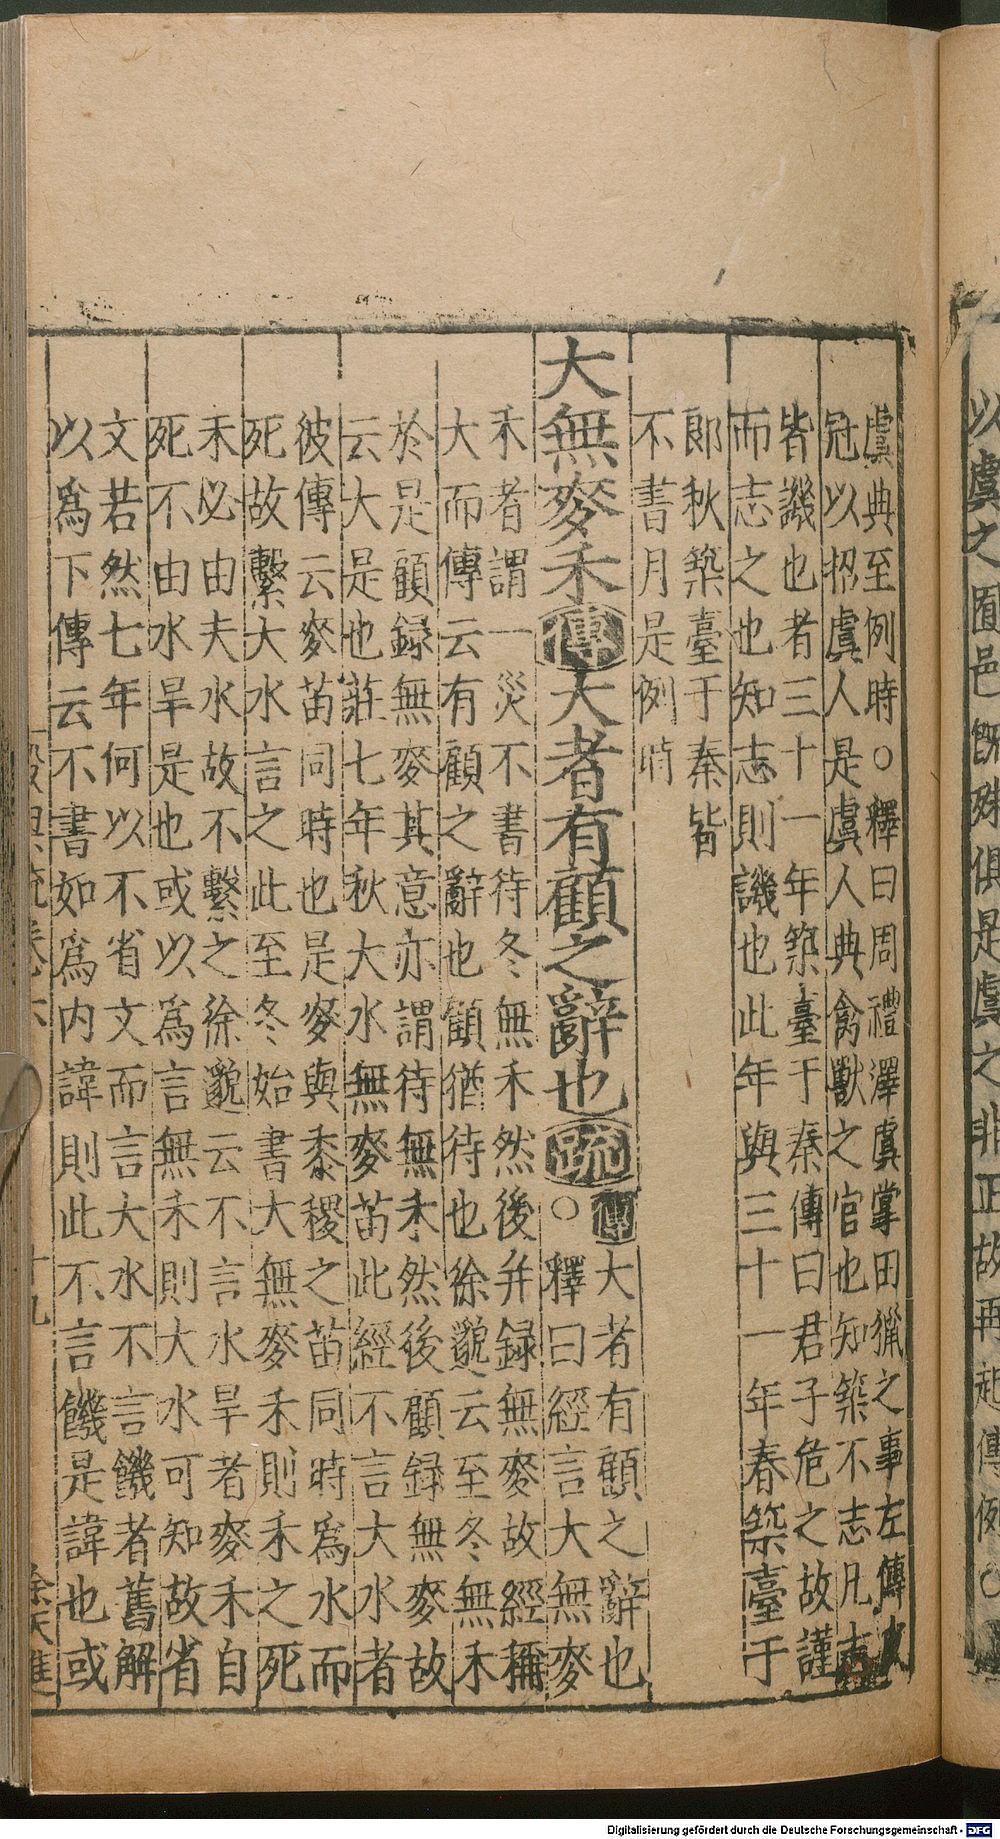 以虞之囿邑既殊俱是虞之非正故再起傳例
虞典至例時○釋曰周禮澤虞掌田獵之事左傳
冠以招虞人是虞人典禽獸之官也知築不志凡志
皆譏也者三十一年築臺于秦傳曰君子危之故謹
而志之也知志則譏也此年與三十一年春築臺于
郎秋築臺于秦皆
不書月是例時
大無麥禾傳大者有顧之辭也疏傳大者有顧之辭也
○釋曰經言大無麥
禾者謂一災不書待冬無禾然後并録無麥故經稱
大而傳云有顧之辭也顧猶待也徐邈云至冬無禾
於是顧録無麥其意亦謂待無禾然後顧録無麥故
云大是也莊七年秋大水無麥苗此經不言大水者
彼傳云麥苗同時也是麥與黍稷之苗同時爲水而
死故繫大水言之此至冬始書大無麥禾則禾之死
禾必由夫水故不繫之徐邈云不言水旱者麥禾自
死不由水旱是也或以爲言無禾則大水可知故省
文若然七年何以不省文而言大水不言饑者舊解
以爲下傳云不書如爲内諱則此不言饑是諱也或
十九
Digitalisierung gefördert durch die Deutsche Forschungsgemeinschaft - DFG